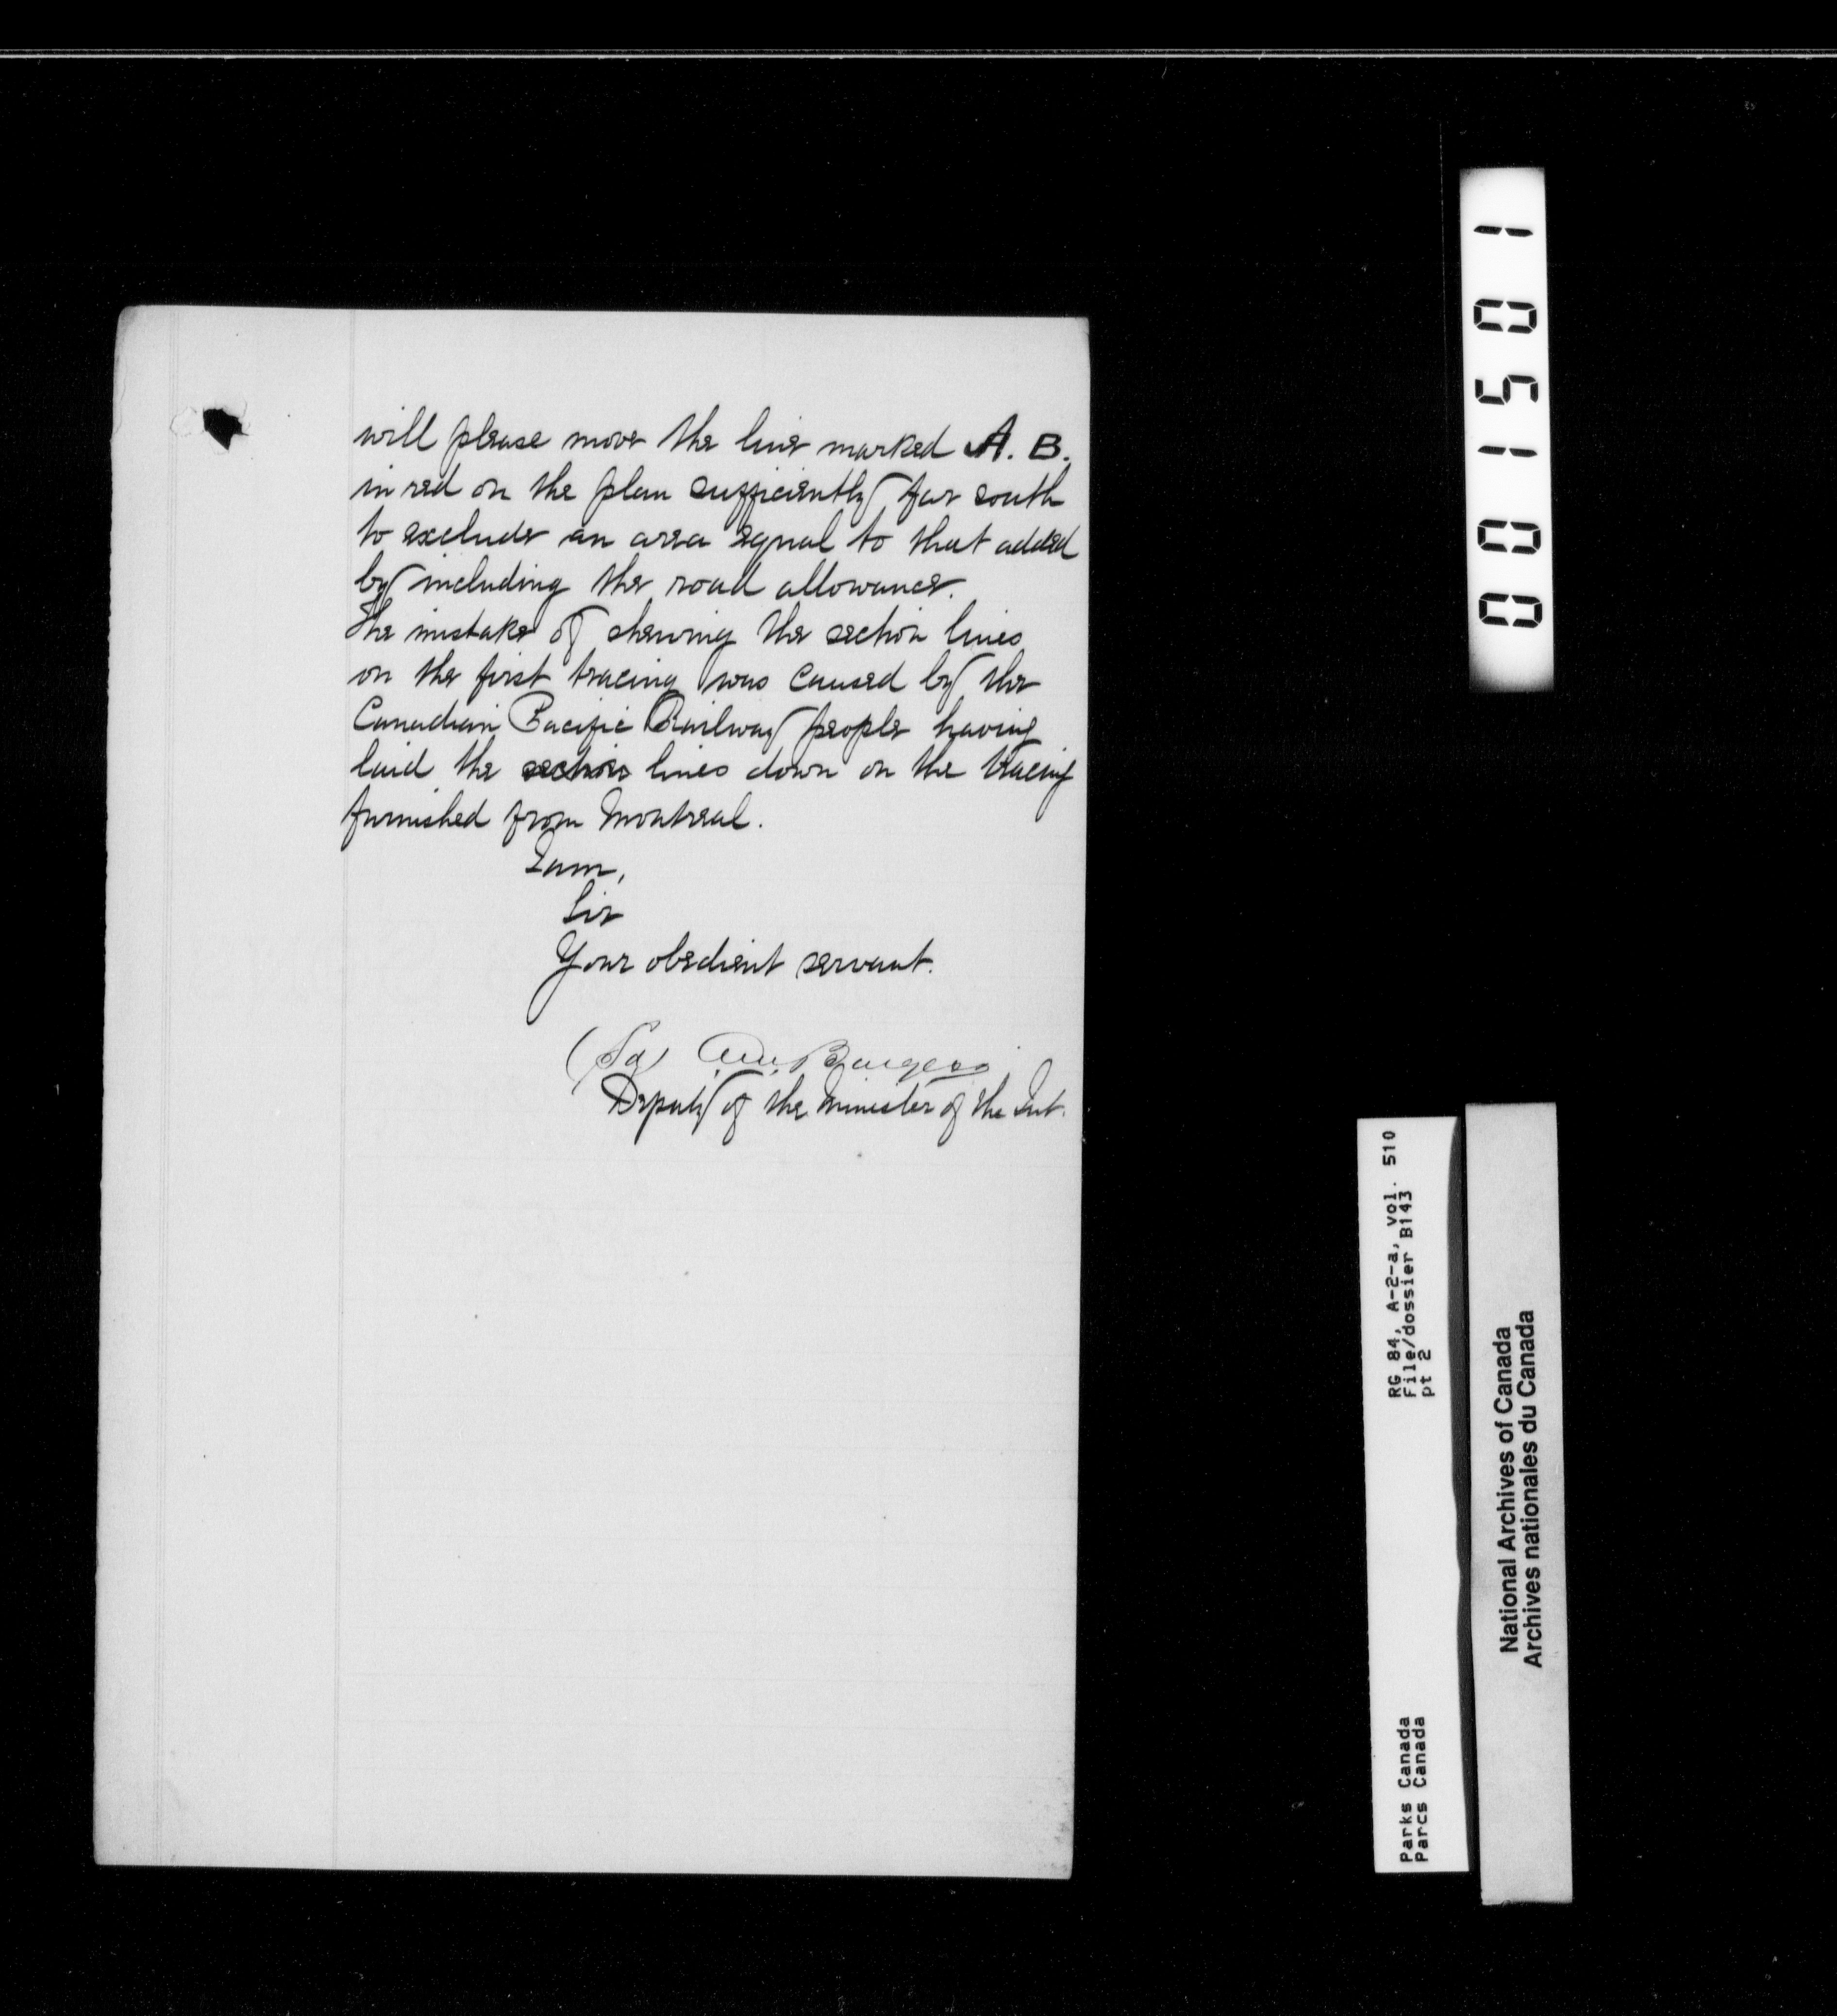 will please move the line marked A. B.
in red on the plan sufficiently far south
to exclude an area equal to that added
by including the road allowance.
The mistake of shewing the section lines
on the first tracing was caused by the
Canadian Pacific Railway people having
laid the section lines down on the tracing
furnished from Montreal.
I am,
Sir
Your obedient servant.
(Sd) A.M. Burgess
Deputy of the Minister of the Int.
001501
RG 84, A-2-a, vol. 510
File/dossier B143
pt 2
Parks Canada
Parcs Canada
National Archives of Canada
Archives nationales du Canada